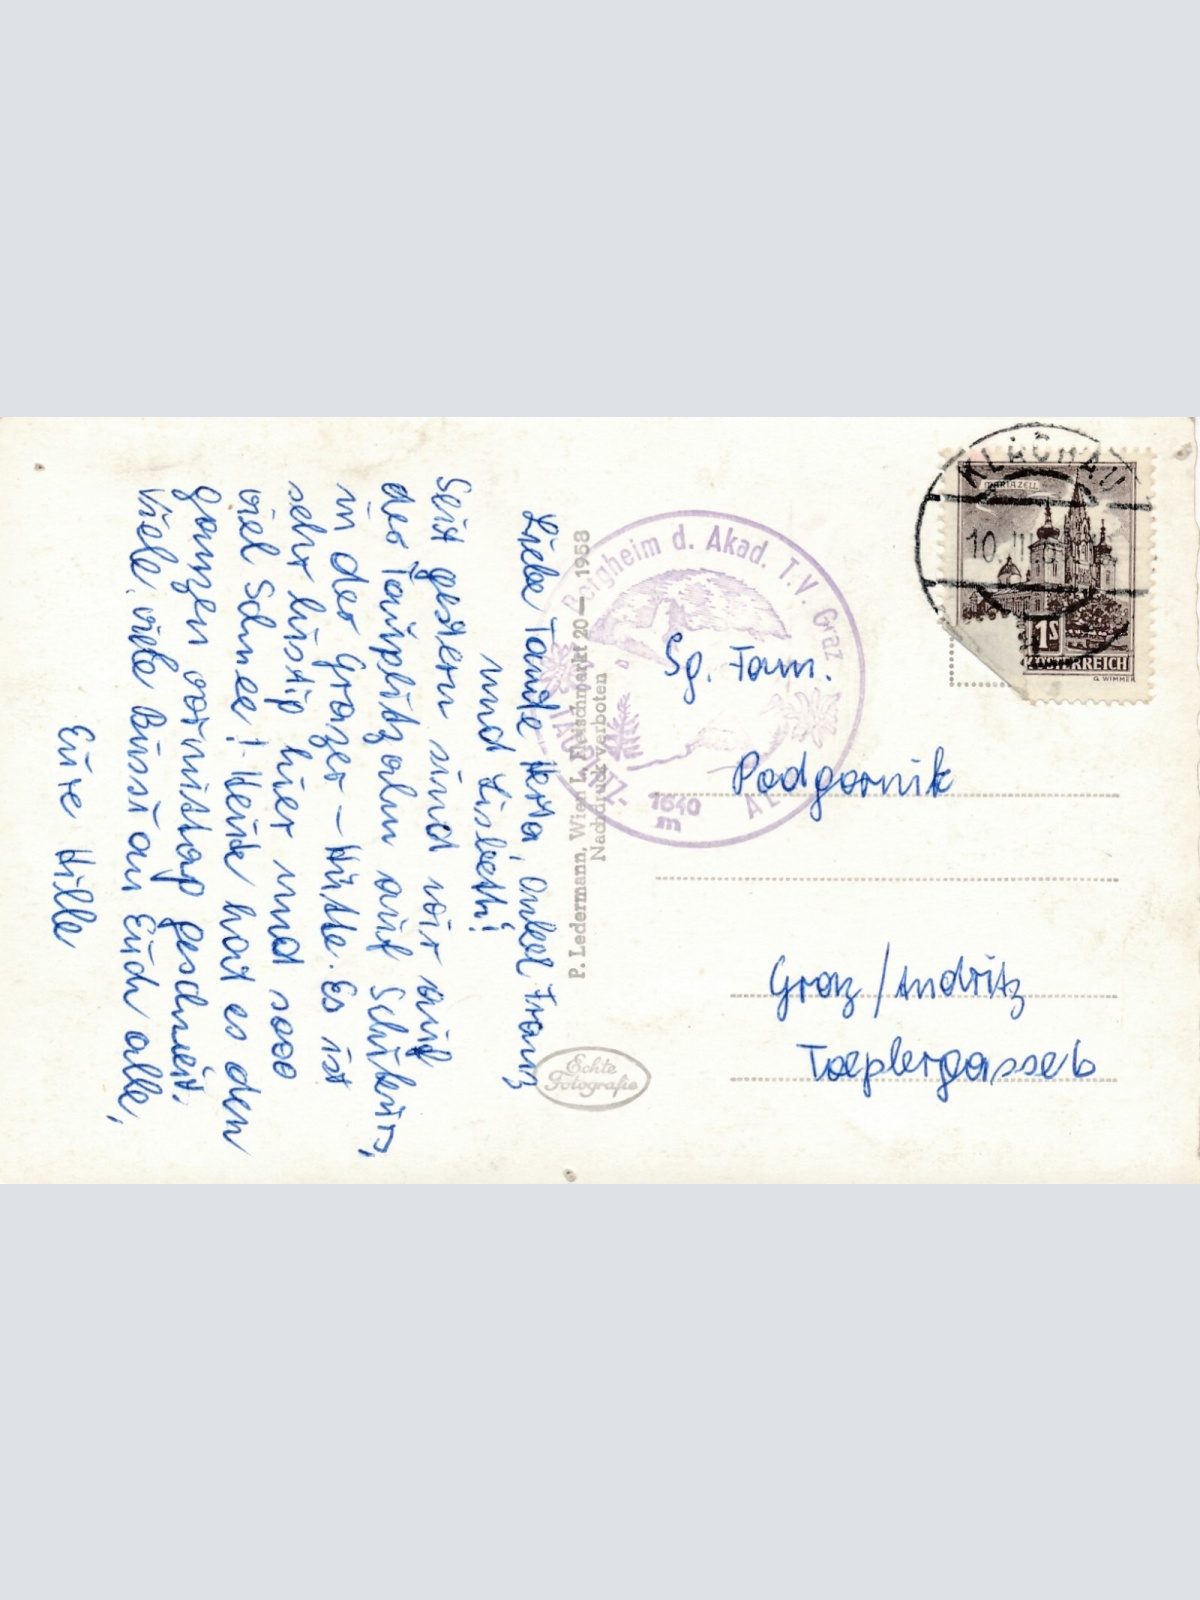 Liebe Tante Herta, Onkel Franz
und Lisbeth!
Seit gestern sind wir auf
der Tauplitzalm auf Schikurs,
in der Grazer-Hütte. Es ist
sehr lustig hier und sooo
viel Schnee! Heute hat es den
ganzen vormittag geschneit.
Viele, viele Bussi an Euch alle,
Eure Hille
P. Ledermann, Wien I., Fleischmarkt 20 — 1958
Nachdruck verboten
Echte
Fotografie
Bergheim d. Akad. T.V. Graz
1640
m
KLACHAU
10. II
MARIAZELL
1S
ÖSTERREICH
G. WIMMER
Sg. Fam.
Podgornik
Graz/Andritz
Toeplergasse 6